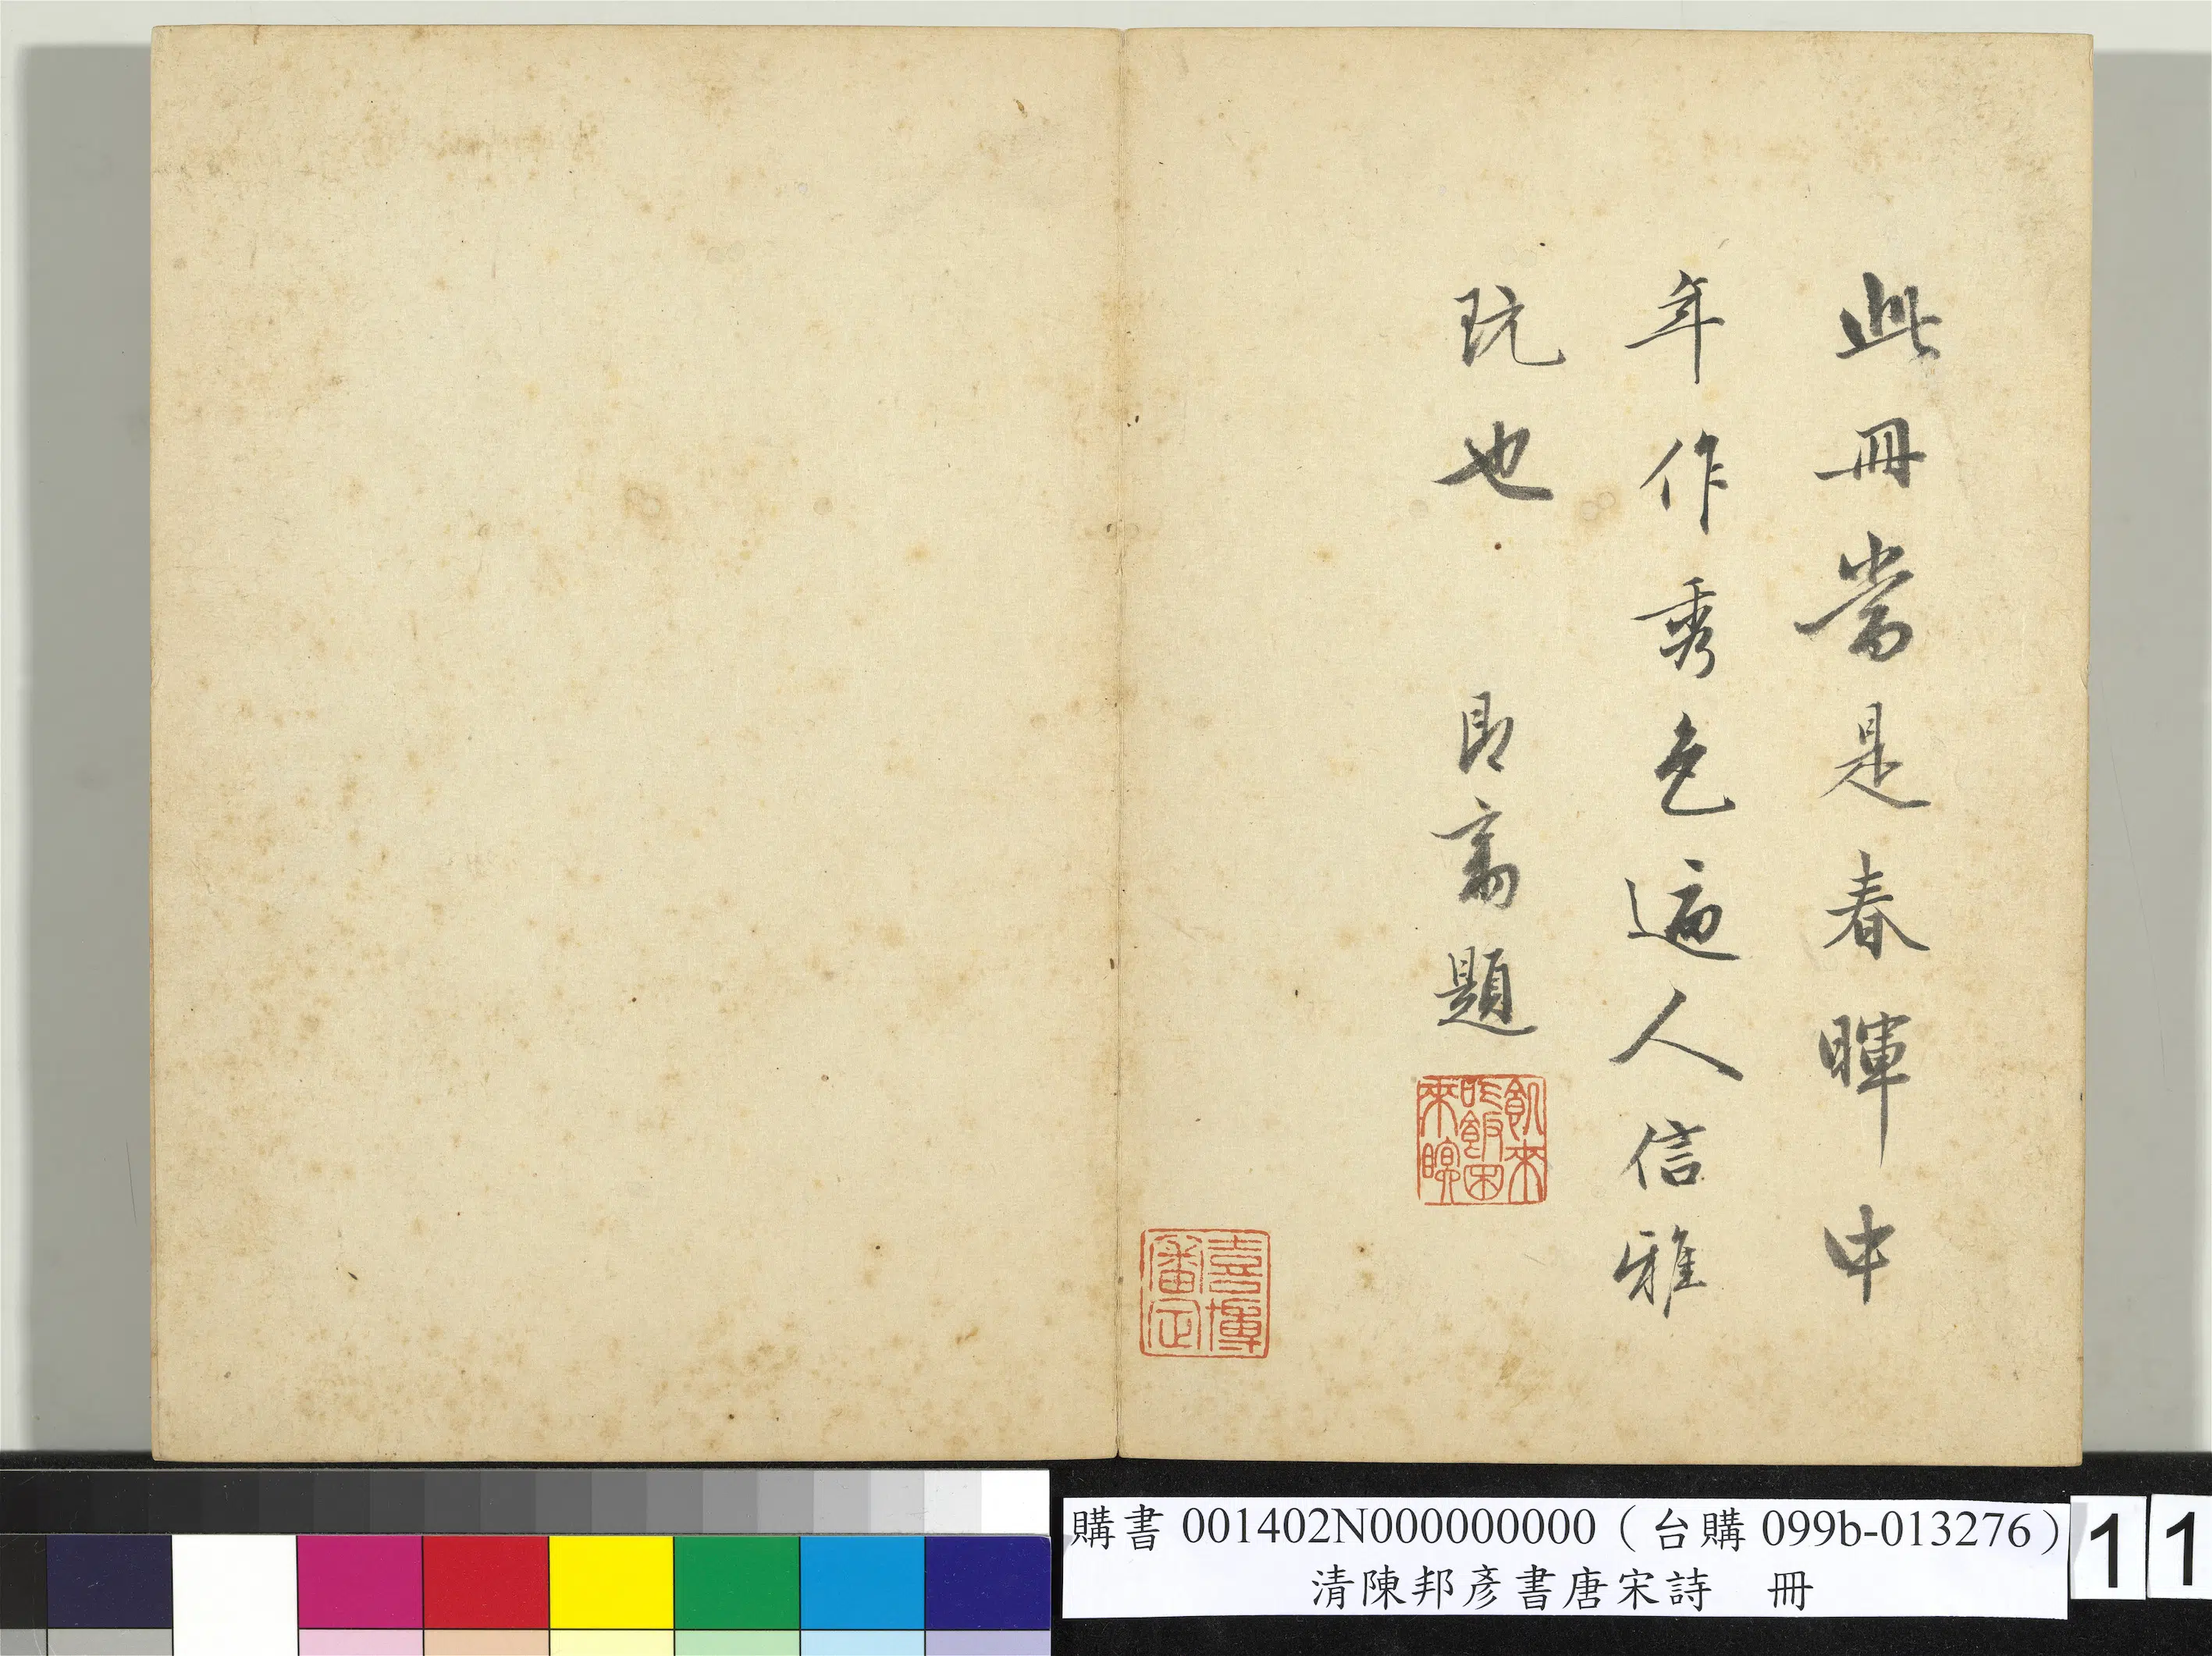 此冊當是春暉中
年作秀色逼人信雅
玩也 即齋題
飢來
吃飯困
來眠
審定
購書 001402N000000000（台購 099b-013276）
清陳邦彥書唐宋詩 冊
11